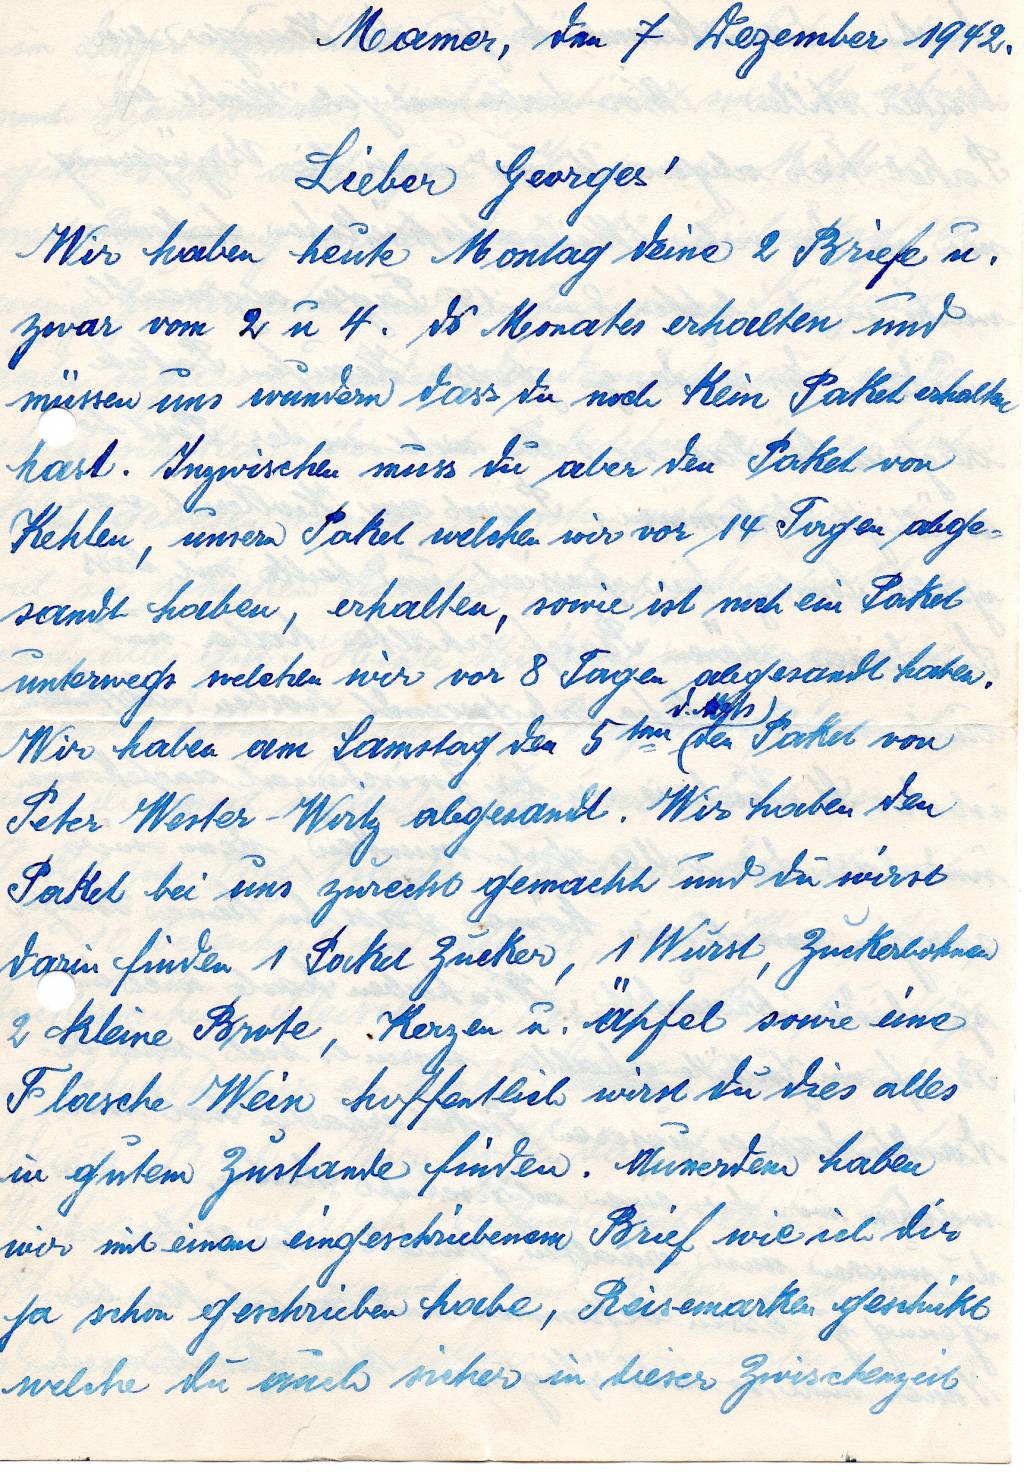 Mamer, den 7 Dezember 1942.
Lieber Georges!
Wir haben heute Montag deine 2 Briefe u.
zwar vom 2 u 4. ds Monates erhalten und
müssen uns wundern dass du noch Kein Paket erhalten
hast. Inzwischen muss du aber den Paket von
Kehlen, unsern Paket welchen wir vor 14 Tagen abge-
sandt haben, erhalten, sowie ist noch ein Paket
unterwegs welchen wir vor 8 Tagen abgesandt haben.
Wir haben am Samstag den 5 ten (den Paket von
Peter Wester-Wirtz abgesandt. Wir haben den
Paket bei uns zurecht gemacht und du wirst
darin finden 1 Paket Zucker, 1 Wurst, Zuckerbohnen
2 kleine Brote, Kerzen u. Äpfel sowie eine
Flasche Wein hoffentlich wirst du dies alles
in gutem Zustande finden. Ausserdem haben
wir mit einem eingeschriebenem Brief wie ich dir
ja schon geschrieben habe, Reisemarken geschikt
welche du auch sicher in dieser Zwischenzeit